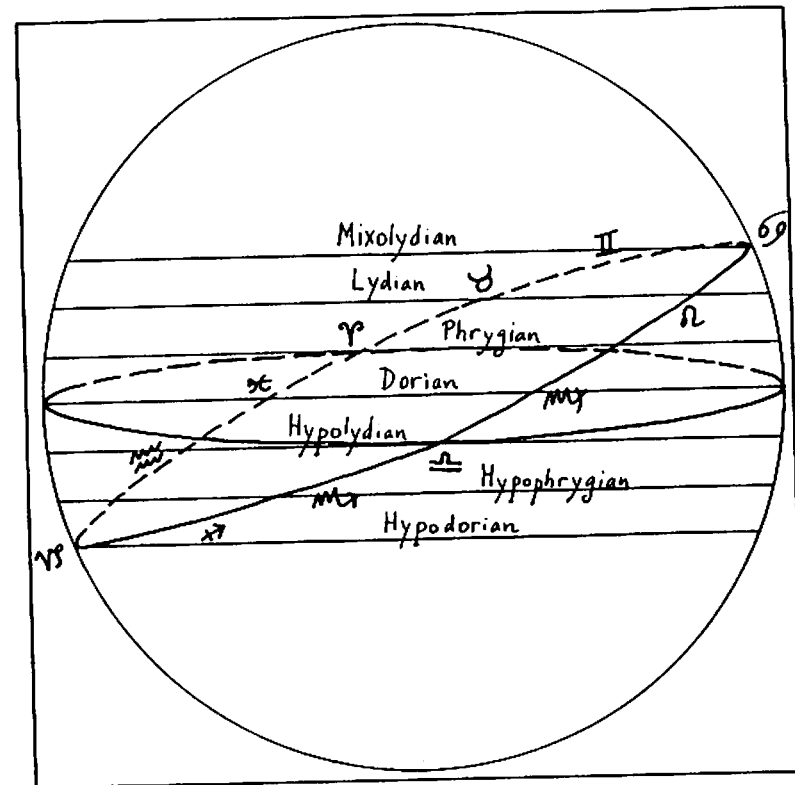 Mixolydian
♋
♊
Lydian
♉
♌
♈
Phrygian
♓
Dorian
♍
Hypolydian
♒
♎
Hypophrygian
♏
♐
Hypodorian
♑